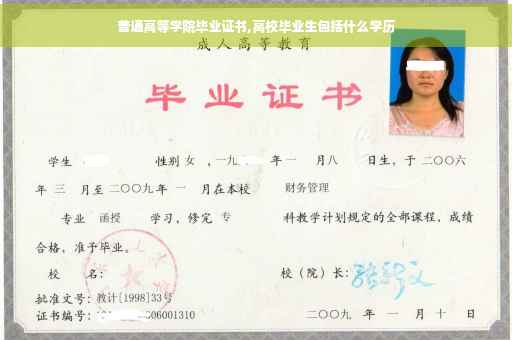 普通高等学院毕业证书,高校毕业生包括什么学历
成人高等教育
毕业证书
学生 性别 女 ，一九 年 一 月八 日生，于 二〇〇六
年 三 月至 二〇〇九 年 一 月在本校 财务管理
专业 函授 学习，修完 专 科教学计划规定的全部课程，成绩
合格，准予毕业。
校 名： 校（院）长：
批准文号：教计[1998]33号
证书编号： 006001310 二〇〇九 年 一 月 十 日